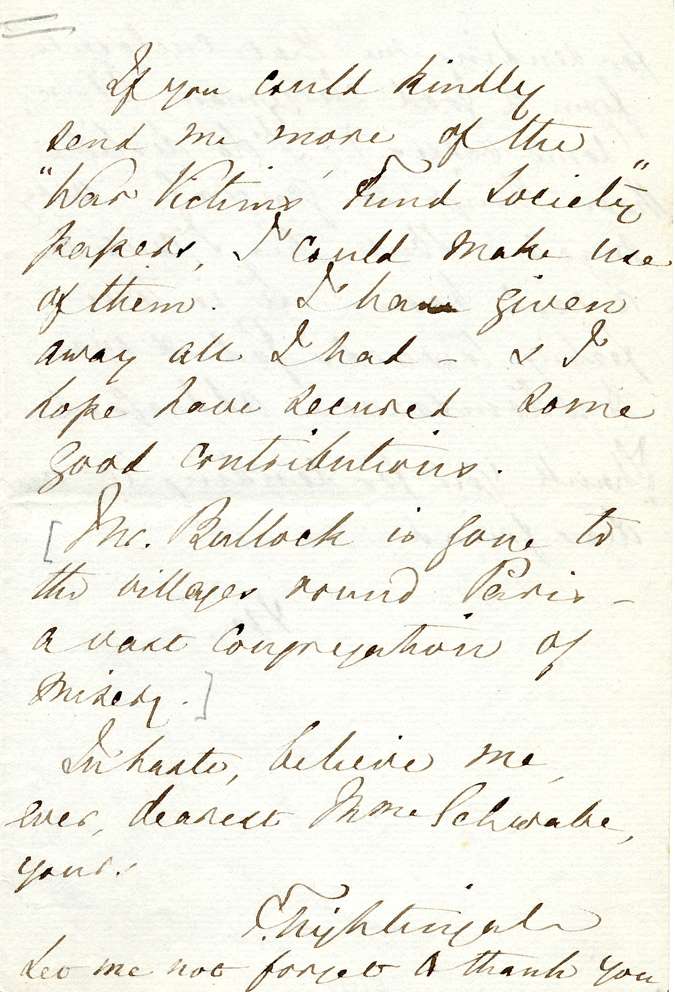 If you could kindly
send me more of the
"War Victims' Fund Society"
papers, I could make use
of them. I have given
away all I had – & I
hope have secured some
good contributions.
[Mr. Bullock is gone to
the villages round Paris –
a vast congregation of
misery.]
In haste, believe me,
ever, dearest Mme Schwabe,
yours
F. Nightingale
Let me not forget to thank you